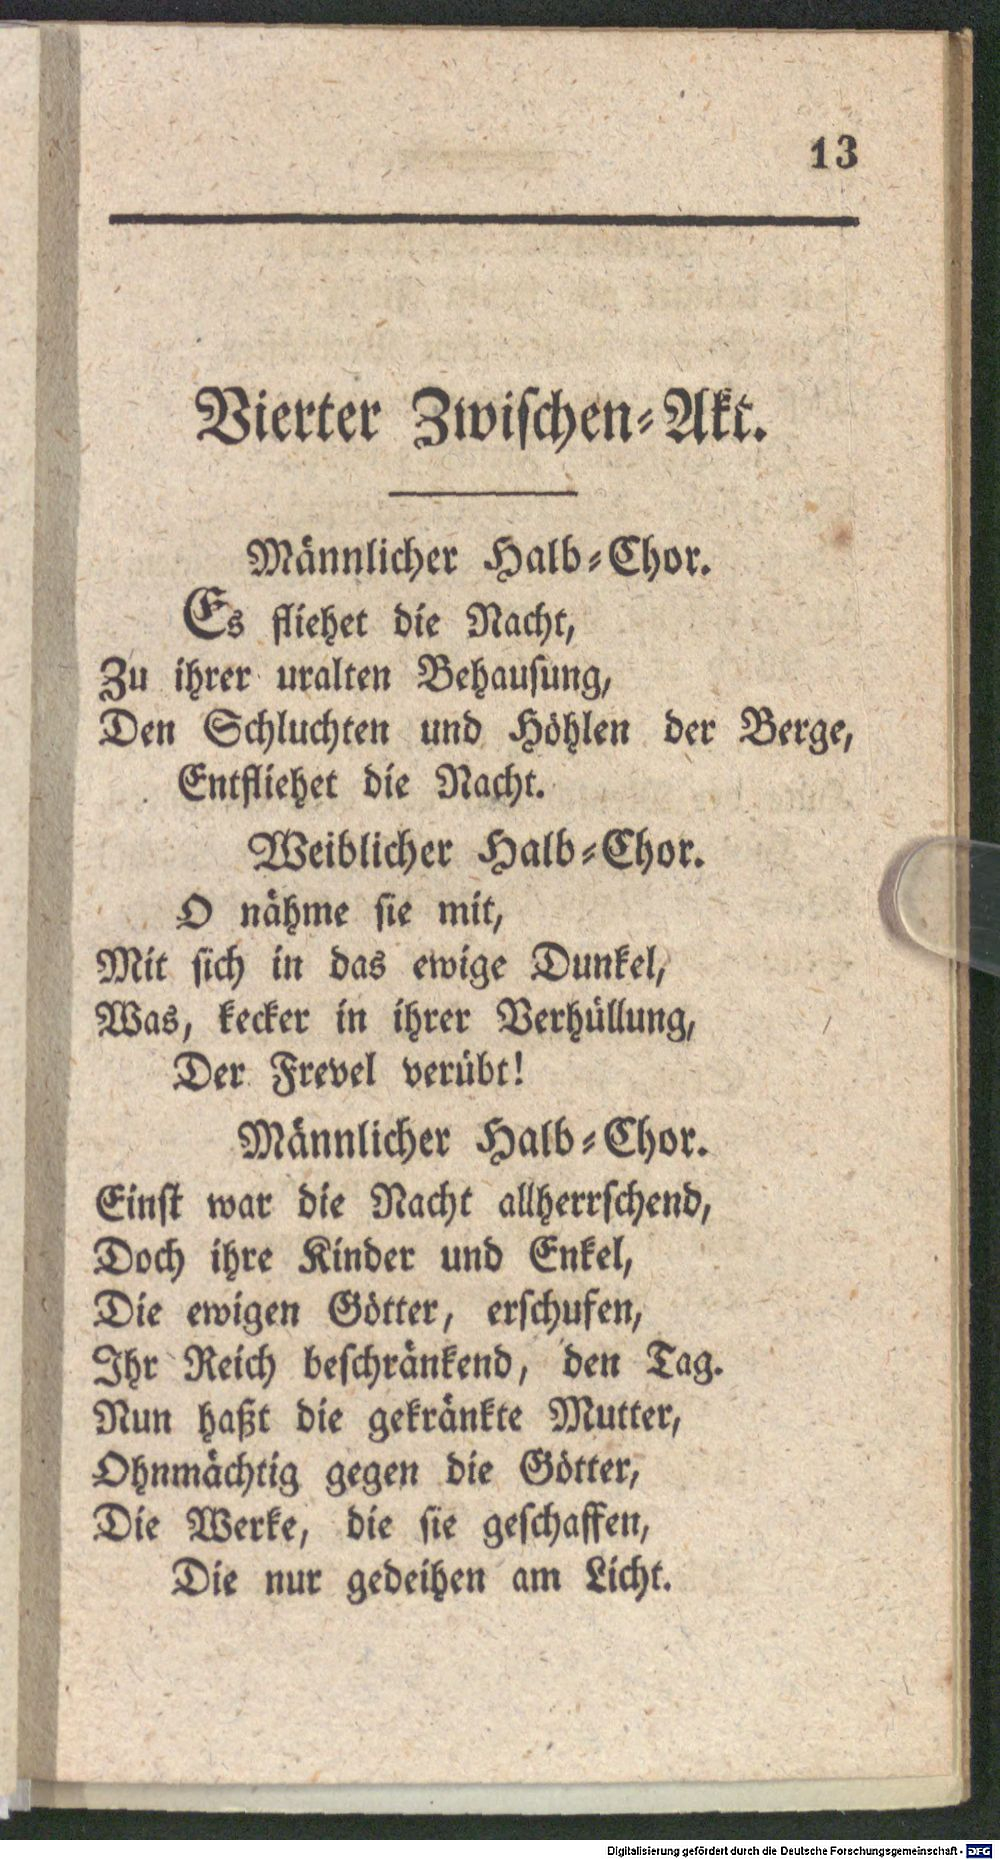 13
Vierter Zwiſchen-Akt.
Männlicher Halb-Chor.
Es fliehet die Nacht,
Zu ihrer uralten Behauſung,
Den Schluchten und Höhlen der Berge,
Entfliehet die Nacht.
Weiblicher Halb-Chor.
O nähme ſie mit,
Mit ſich in das ewige Dunkel,
Was, kecker in ihrer Verhüllung,
Der Frevel verübt!
Männlicher Halb-Chor.
Einſt war die Nacht allherrſchend,
Doch ihre Kinder und Enkel,
Die ewigen Götter, erſchufen,
Ihr Reich beſchränkend, den Tag.
Nun haßt die gekränkte Mutter,
Ohnmächtig gegen die Götter,
Die Werke, die ſie geſchaffen,
Die nur gedeihen am Licht.
Digitalisierung gefördert durch die Deutsche Forschungsgemeinschaft - DFG